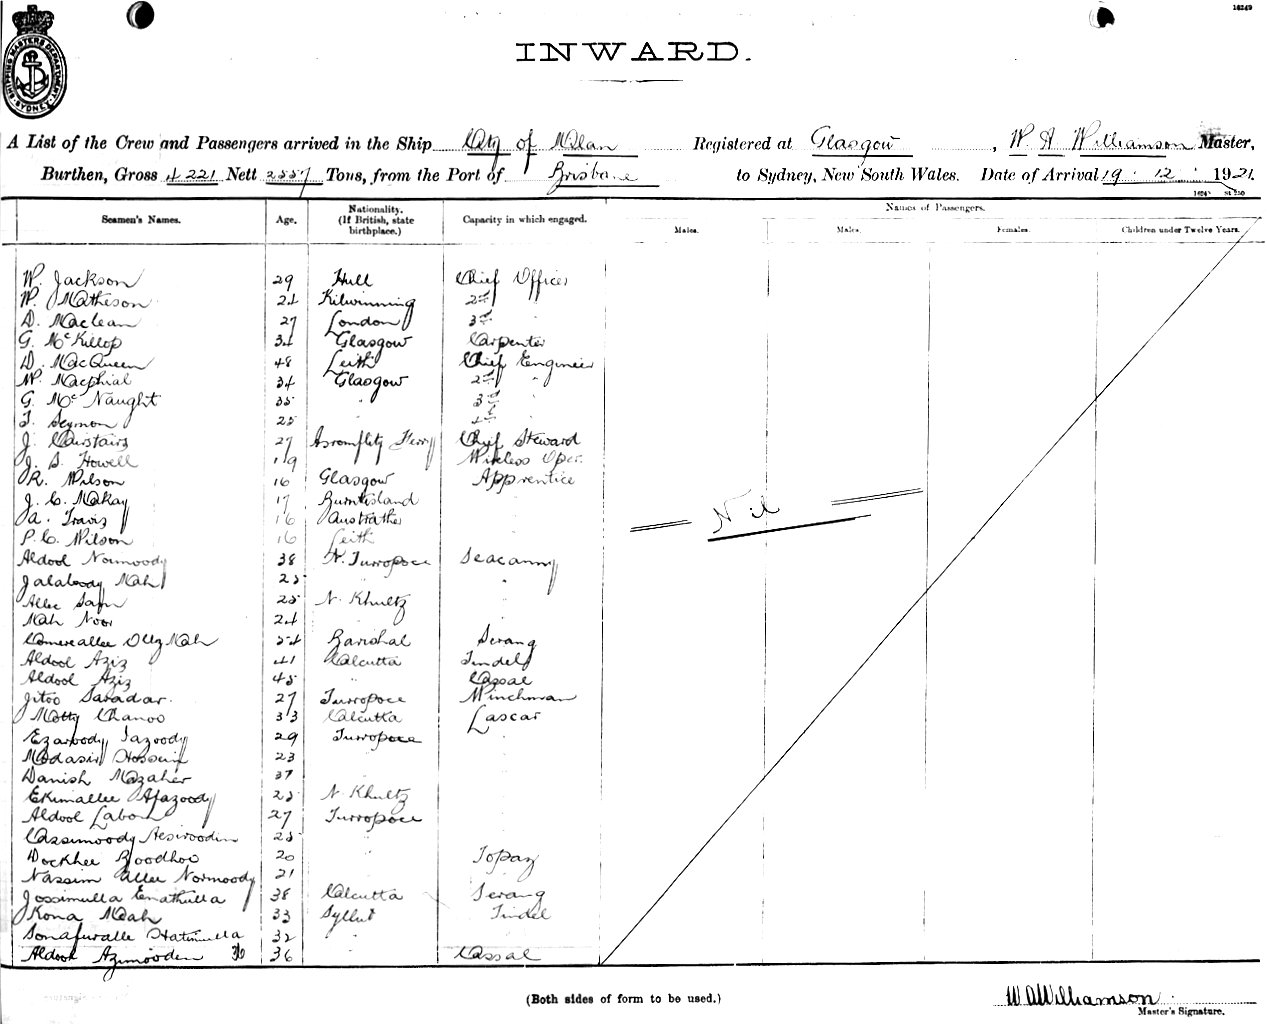 16249
SHIPPING MASTERS DEPARTMENT SYDNEY
INWARD.
A List of the Crew and Passengers arrived in the Ship City of Milan Registered at Glasgow, W. A Williamson Master,
Burthen, Gross 4221 Nett 2557 Tons, from the Port of Brisbane to Sydney, New South Wales. Date of Arrival 19 . 12 . 1921
Names of Passengers.
Seamen's Names. Age. Nationality. (If British, state birthplace.) Capacity in which engaged. Males. Males. Females. Children under Twelve Years.
W. Jackson 29 Hull Chief Officer
W. Matheson 24 Kilwinning 2nd "
D. Maclean 27 London 3rd "
G. McKillop 34 Glasgow Carpenter
D. MacQueen 48 Leith Chief Engineer
W. Macphial 34 Glasgow 2nd "
G. McNaught 35 " 3rd
T. Seymon 25 " 4th
J. Cairstairs 27 Ferry Chief Steward
J. S. Howell 19 " Wireless Oper.
R. Wilson 16 Glasgow Apprentice
J. C. McKay 17 Burntisland "
A. Travis 16 "
P. C. Wilson 16 Leith "
Aldool Normoody 38 N. Turropoce Seacunny
Jalaloody Mah 25 " "
Allee Sam 25 N. Khultz "
Mah Noor 24 " "
Comereallee Mah 54 Barishal Serang
Aldool Aziz 41 Calcutta Tindel
Aldool Aziz 45 " Cassal
Jitoo Saradar. 27 Turropoce Winchman
Motty Chanoo 33 Calcutta Lascar
Ezaroody Jazoody 29 Turropoce "
Modasir Hossein 23 " "
Danish Mozaher 37 " "
Ekimallee Afazoody 25 N. Khultz "
Aldool Labor 27 Turropoce "
Cassimoody Nesiroodin 25 " "
Dockhee Boodhoo 20 " Topaz
Nassim Allee Normoody 21 " "
Jossimulla Enathulla 38 Calcutta Serang
Kona Meah 33 Syllut Tindel
Sonafuralle Hatimulla 32 " "
Aldool Azimooden 36 " Cassal
Nil
(Both sides of form to be used.)
WAWilliamson
Master's Signature.